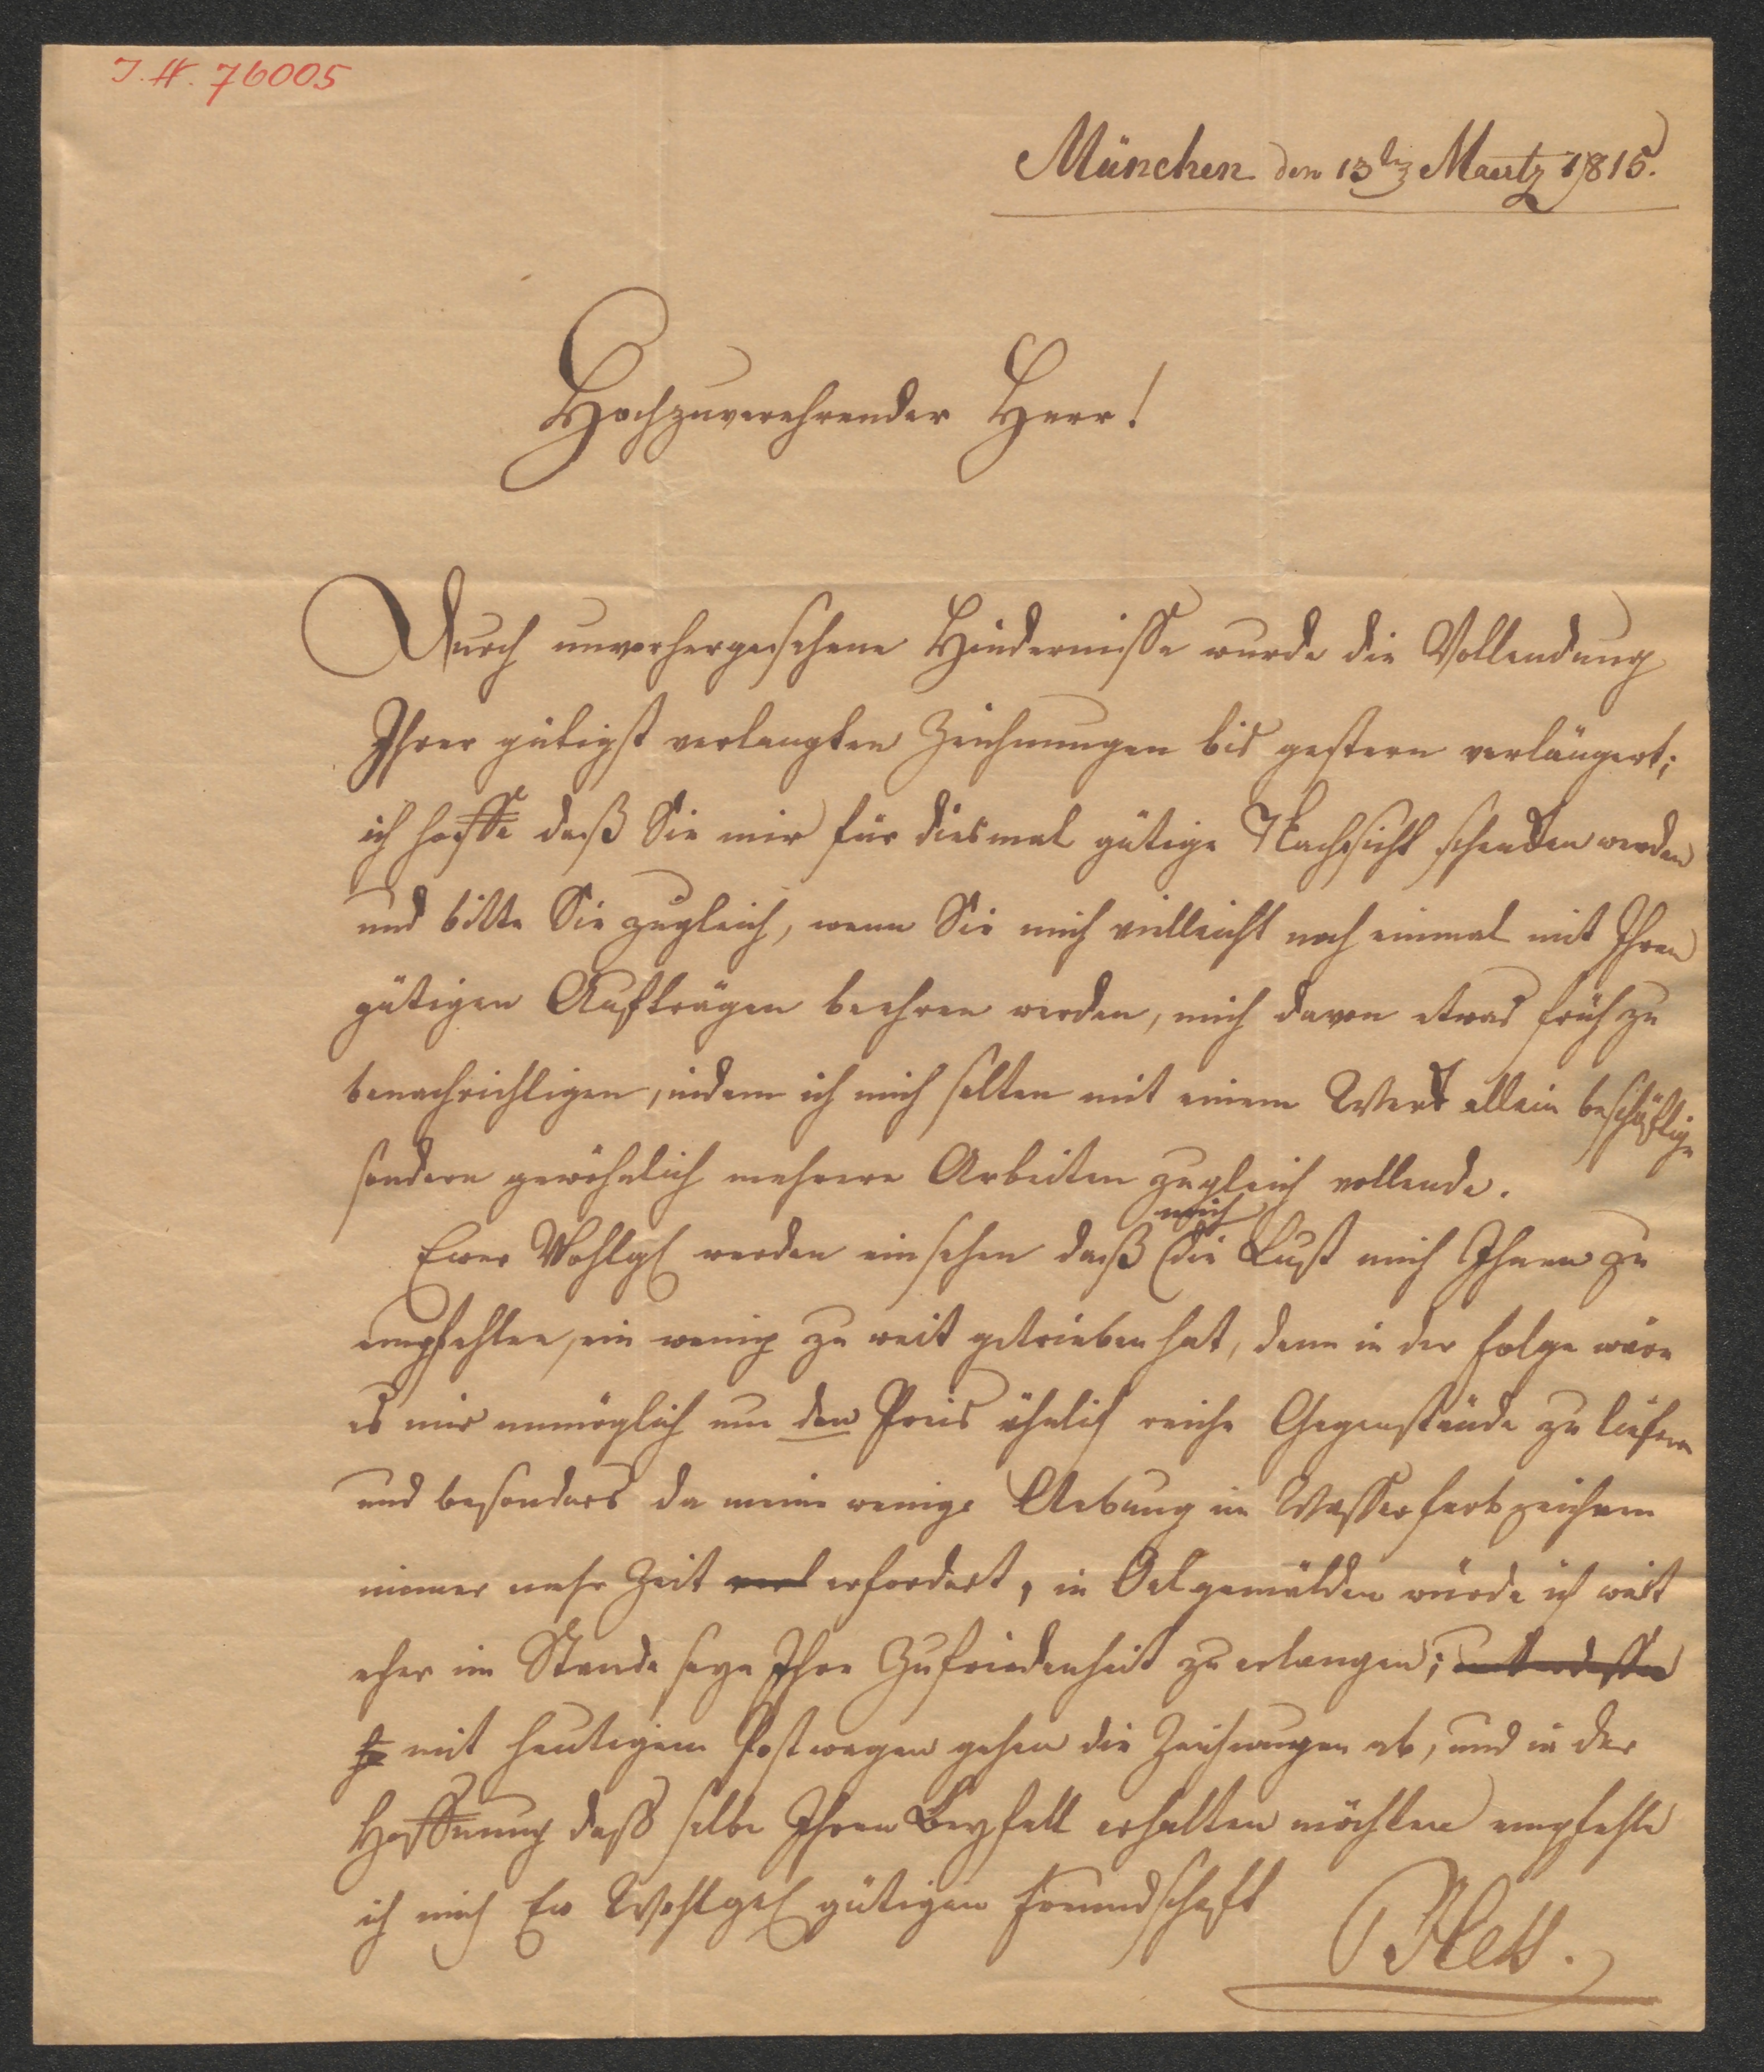 J. N. 76005
München den 13ten Maertz 1815.
Hochzuverehrender Herr!
Durch unvorhergesehene Hindernisse wurde die Vollendung
Ihrer gütigst verlangten Zeichnungen bis gestern verlängert;
ich hoffe daß Sie mir für diesmal gütige Nachsicht schenken werden
und bitte Sie zugleich, wenn Sie mich vielleicht noch einmal mit Ihren
gütigen Aufträgen beehren werden, mich davon etwas früh zu
benachrichtigen, indem ich mich selten mit einem Werk allein beschäftige
sondern gewöhnlich mehrere Arbeiten zugleich vollende.
mich
Euer Wohlgb werden einsehen daß die Lust mich Ihnen zu
empfehlen, ein wenig zu weit getrieben hat, denn in der Folge wäre
es mir unmöglich um den Preis ähnlich reiche Gegenstände zu liefern
und besonders da meine wenige Uebung im Wasserfarbzeichnen
immer mehr Zeit erfordert, in Oelgemälden würde ich weit
eher im Stande seyn Ihre Zufriedenheit zu erlangen; unterdessen
mit heutigem Postwagen gehen die Zeichnungen ab, und in der
Hoffnung dass selbe Ihren Beyfall erhalten möchten empfehle
ich mich Eu Wohlgeb gütigen Freundschaft
P Hess.